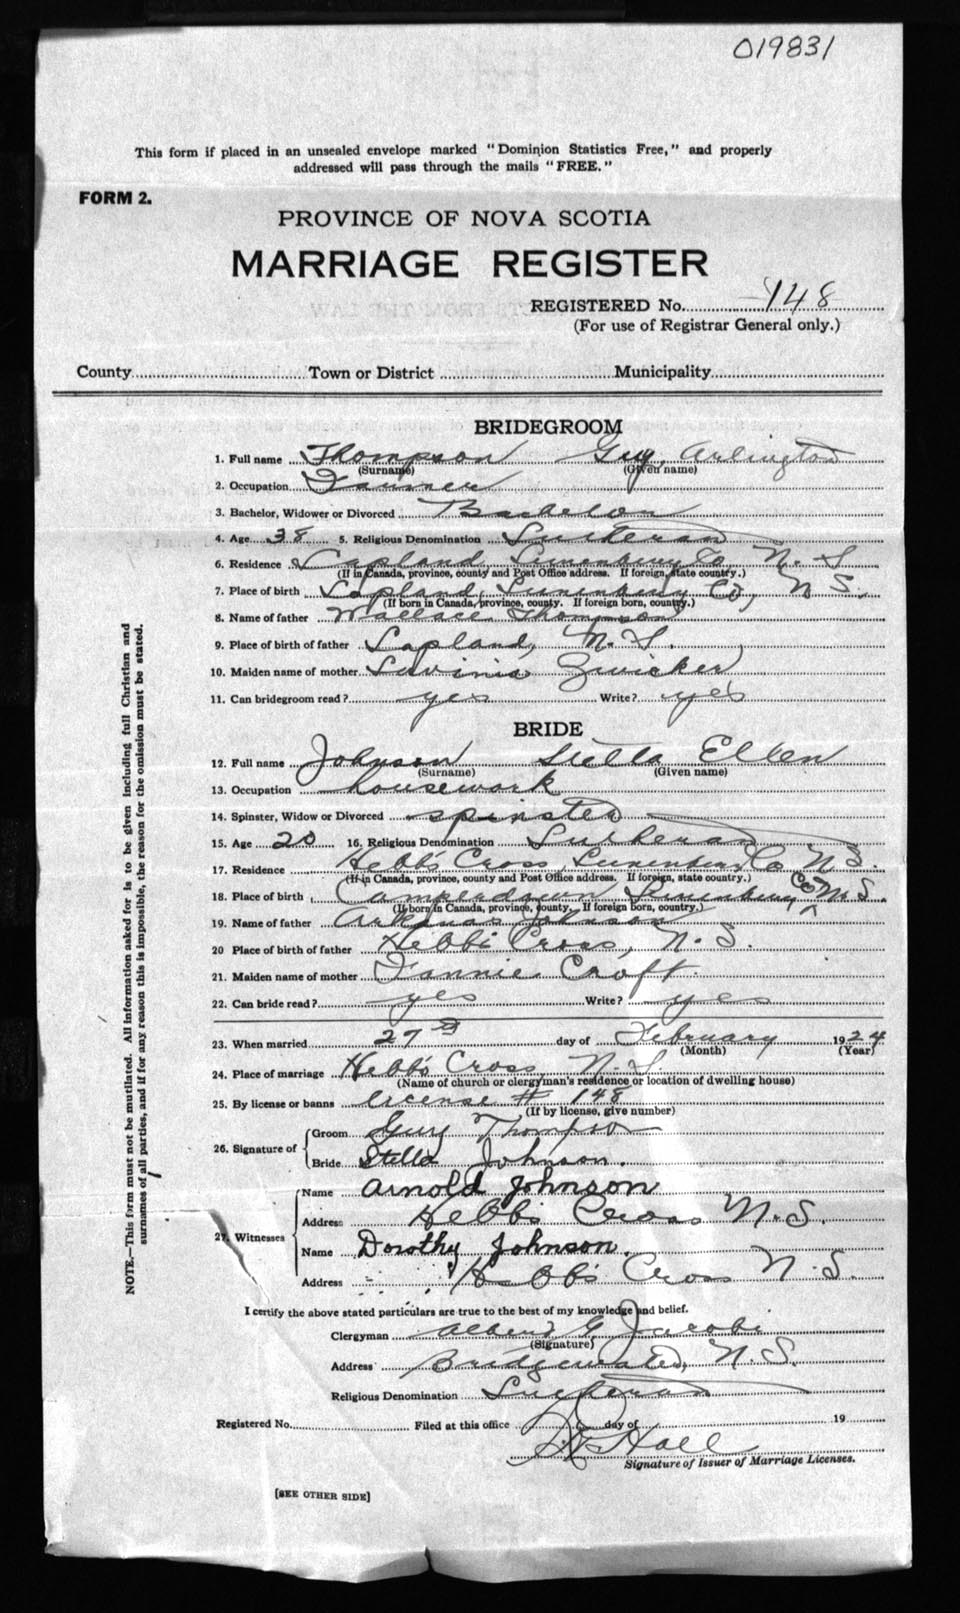 019831
This form if placed in an unsealed envelope marked "Dominion Statistics Free," and properly
addressed will pass through the mails "FREE."
FORM 2.
PROVINCE OF NOVA SCOTIA
MARRIAGE REGISTER
REGISTERED No. 148
(For use of Registrar General only.)
County Town or District Municipality
BRIDEGROOM
1. Full name Thompson Guy Arlington
(Surname) (Given name)
2. Occupation Farmer
3. Bachelor, Widower or Divorced Bachelor
4. Age 38 5. Religious Denomination Lutheran
6. Residence Lapland, Lunenburg Co N. S
(If in Canada, province, county and Post Office address. If foreign, state country.)
7. Place of birth Lapland, Lunenburg Co, N S.
(If born in Canada, province, county. If foreign born, country.)
8. Name of father Wallace Thompson
9. Place of birth of father Lapland, N. S.
10. Maiden name of mother Zwicker
11. Can bridegroom read? yes Write? yes
BRIDE
12. Full name Johnson Stella Ellen
(Surname) (Given name)
13. Occupation housework
14. Spinster, Widow or Divorced spinster
15. Age 20 16. Religious Denomination Lutheran
17. Residence Hebb's Cross, Lunenburg Co N S.
(If in Canada, province, county and Post Office address. If foreign, state country.)
18. Place of birth Camperdown Lunenburg Co N.S.
(If born in Canada, province, county. If foreign born, country.)
19. Name of father Johnson
20 Place of birth of father Hebb's Cross, N. S.
21. Maiden name of mother Fannie Croft.
22. Can bride read? yes Write? yes
23. When married 27th day of February 1924
(Month) (Year)
24. Place of marriage Hebb's Cross, N. S.
(Name of church or clergyman's residence or location of dwelling house)
25. By license or banns License # 148
(If by license, give number)
26. Signature of Groom Guy Thompson
Bride Stella Johnson.
27. Witnesses Name Arnold Johnson
Address Hebb's Cross N. S.
Name Dorothy Johnson.
Address Hebb's Cross N. S.
I certify the above stated particulars are true to the best of my knowledge and belief.
Clergyman Albert G. Jacobi
(Signature)
Address Bridgewater, N. S.
Religious Denomination Lutheran
Registered No. Filed at this office day of 19
Hall
Signature of Issuer of Marriage Licenses.
[SEE OTHER SIDE]
NOTE.—This form must not be mutilated. All information asked for is to be given including full Christian and
surnames of all parties, and if for any reason this is impossible, the reason for the omission must be stated.